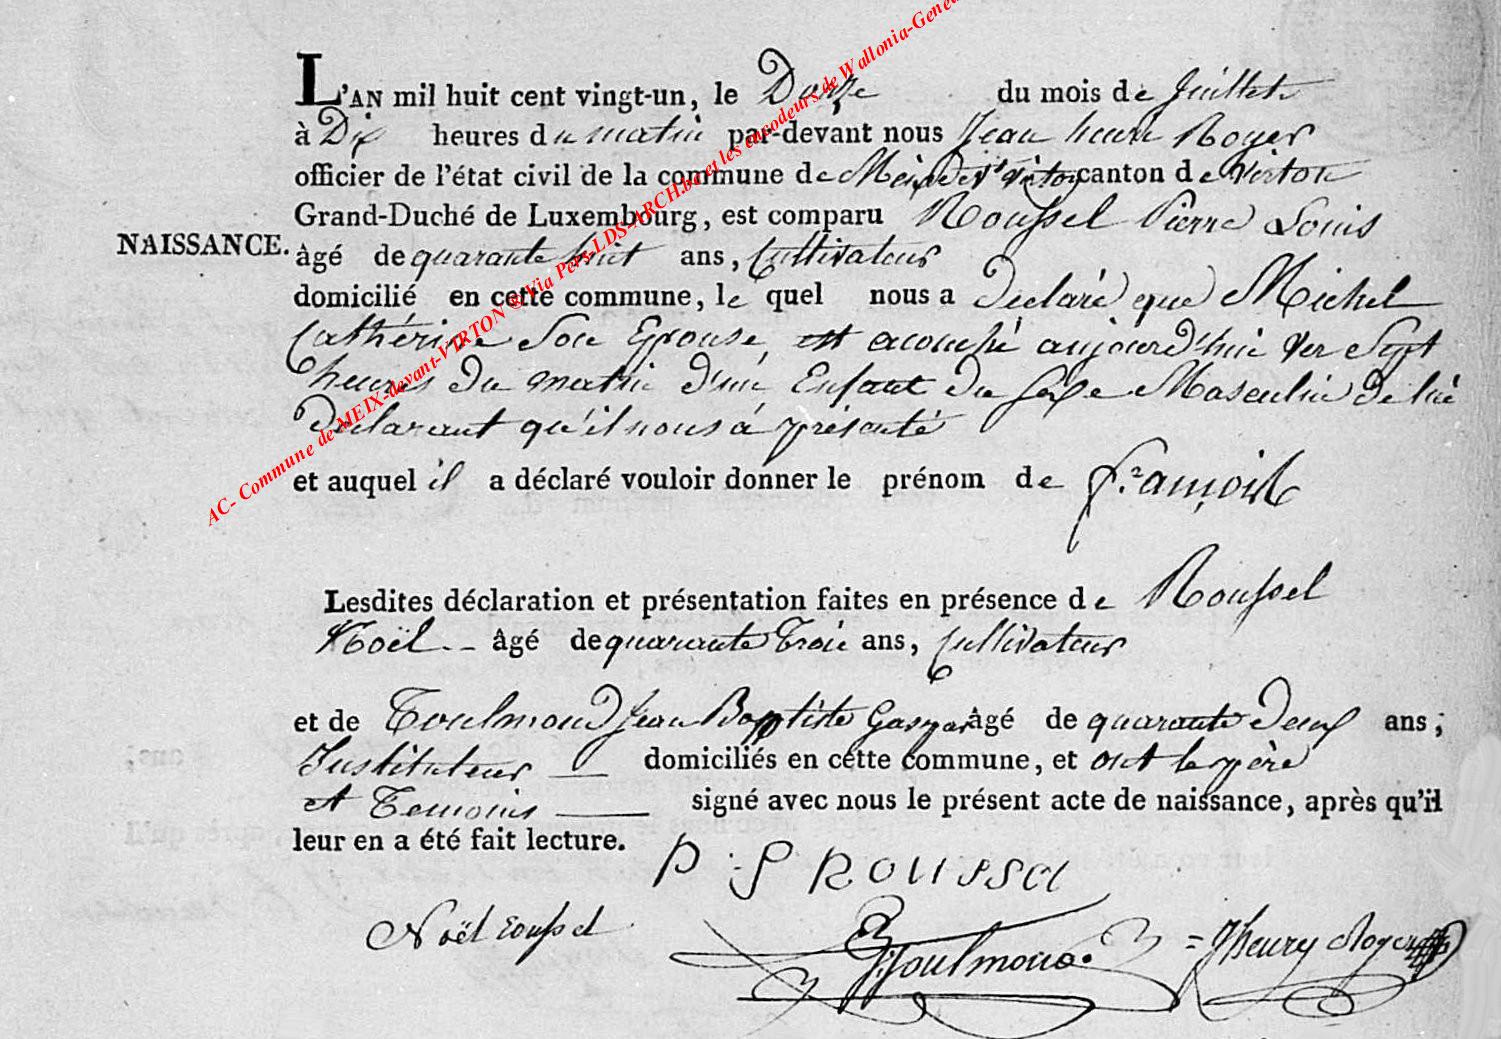 L'AN mil huit cent vingt-un, le Douze du mois de Juillet
à Dix heures du matin par-devant nous Jean henri Royer
officier de l'état civil de la commune de Meix devt virton canton de virton
Grand-Duché de Luxembourg, est comparu Roussel Pierre Louis
NAISSANCE. âgé de quarante huit ans, Cultivateur
domicilié en cette commune, le quel nous a Declaré que Michel
Cathérine Son Epouse, est acouché aujourd'hui ver Sept
heures du matin d'un Enfant du sexe Masculin de lui
Declarant qu'il nous á présenté
et auquel il a déclaré vouloir donner le prénom de François
Lesdites déclaration et présentation faites en présence de Roussel
Noël -- âgé de quarante Trois ans, Cultivateur
et de Toulmond Jean Baptiste Gaspar âgé de quarante deux ans,
Instituteur — domiciliés en cette commune, et ont le père
et Temoins — signé avec nous le présent acte de naissance, après qu'il
leur en a été fait lecture.
P : L ROUSSEl
Noël roussel
Toulmond. = Jhenry Royer
AC- Commune de MEIX-devant-VIRTON © Via Pers-LDS-ARCH.be et les encodeurs de Wallonia-Genea